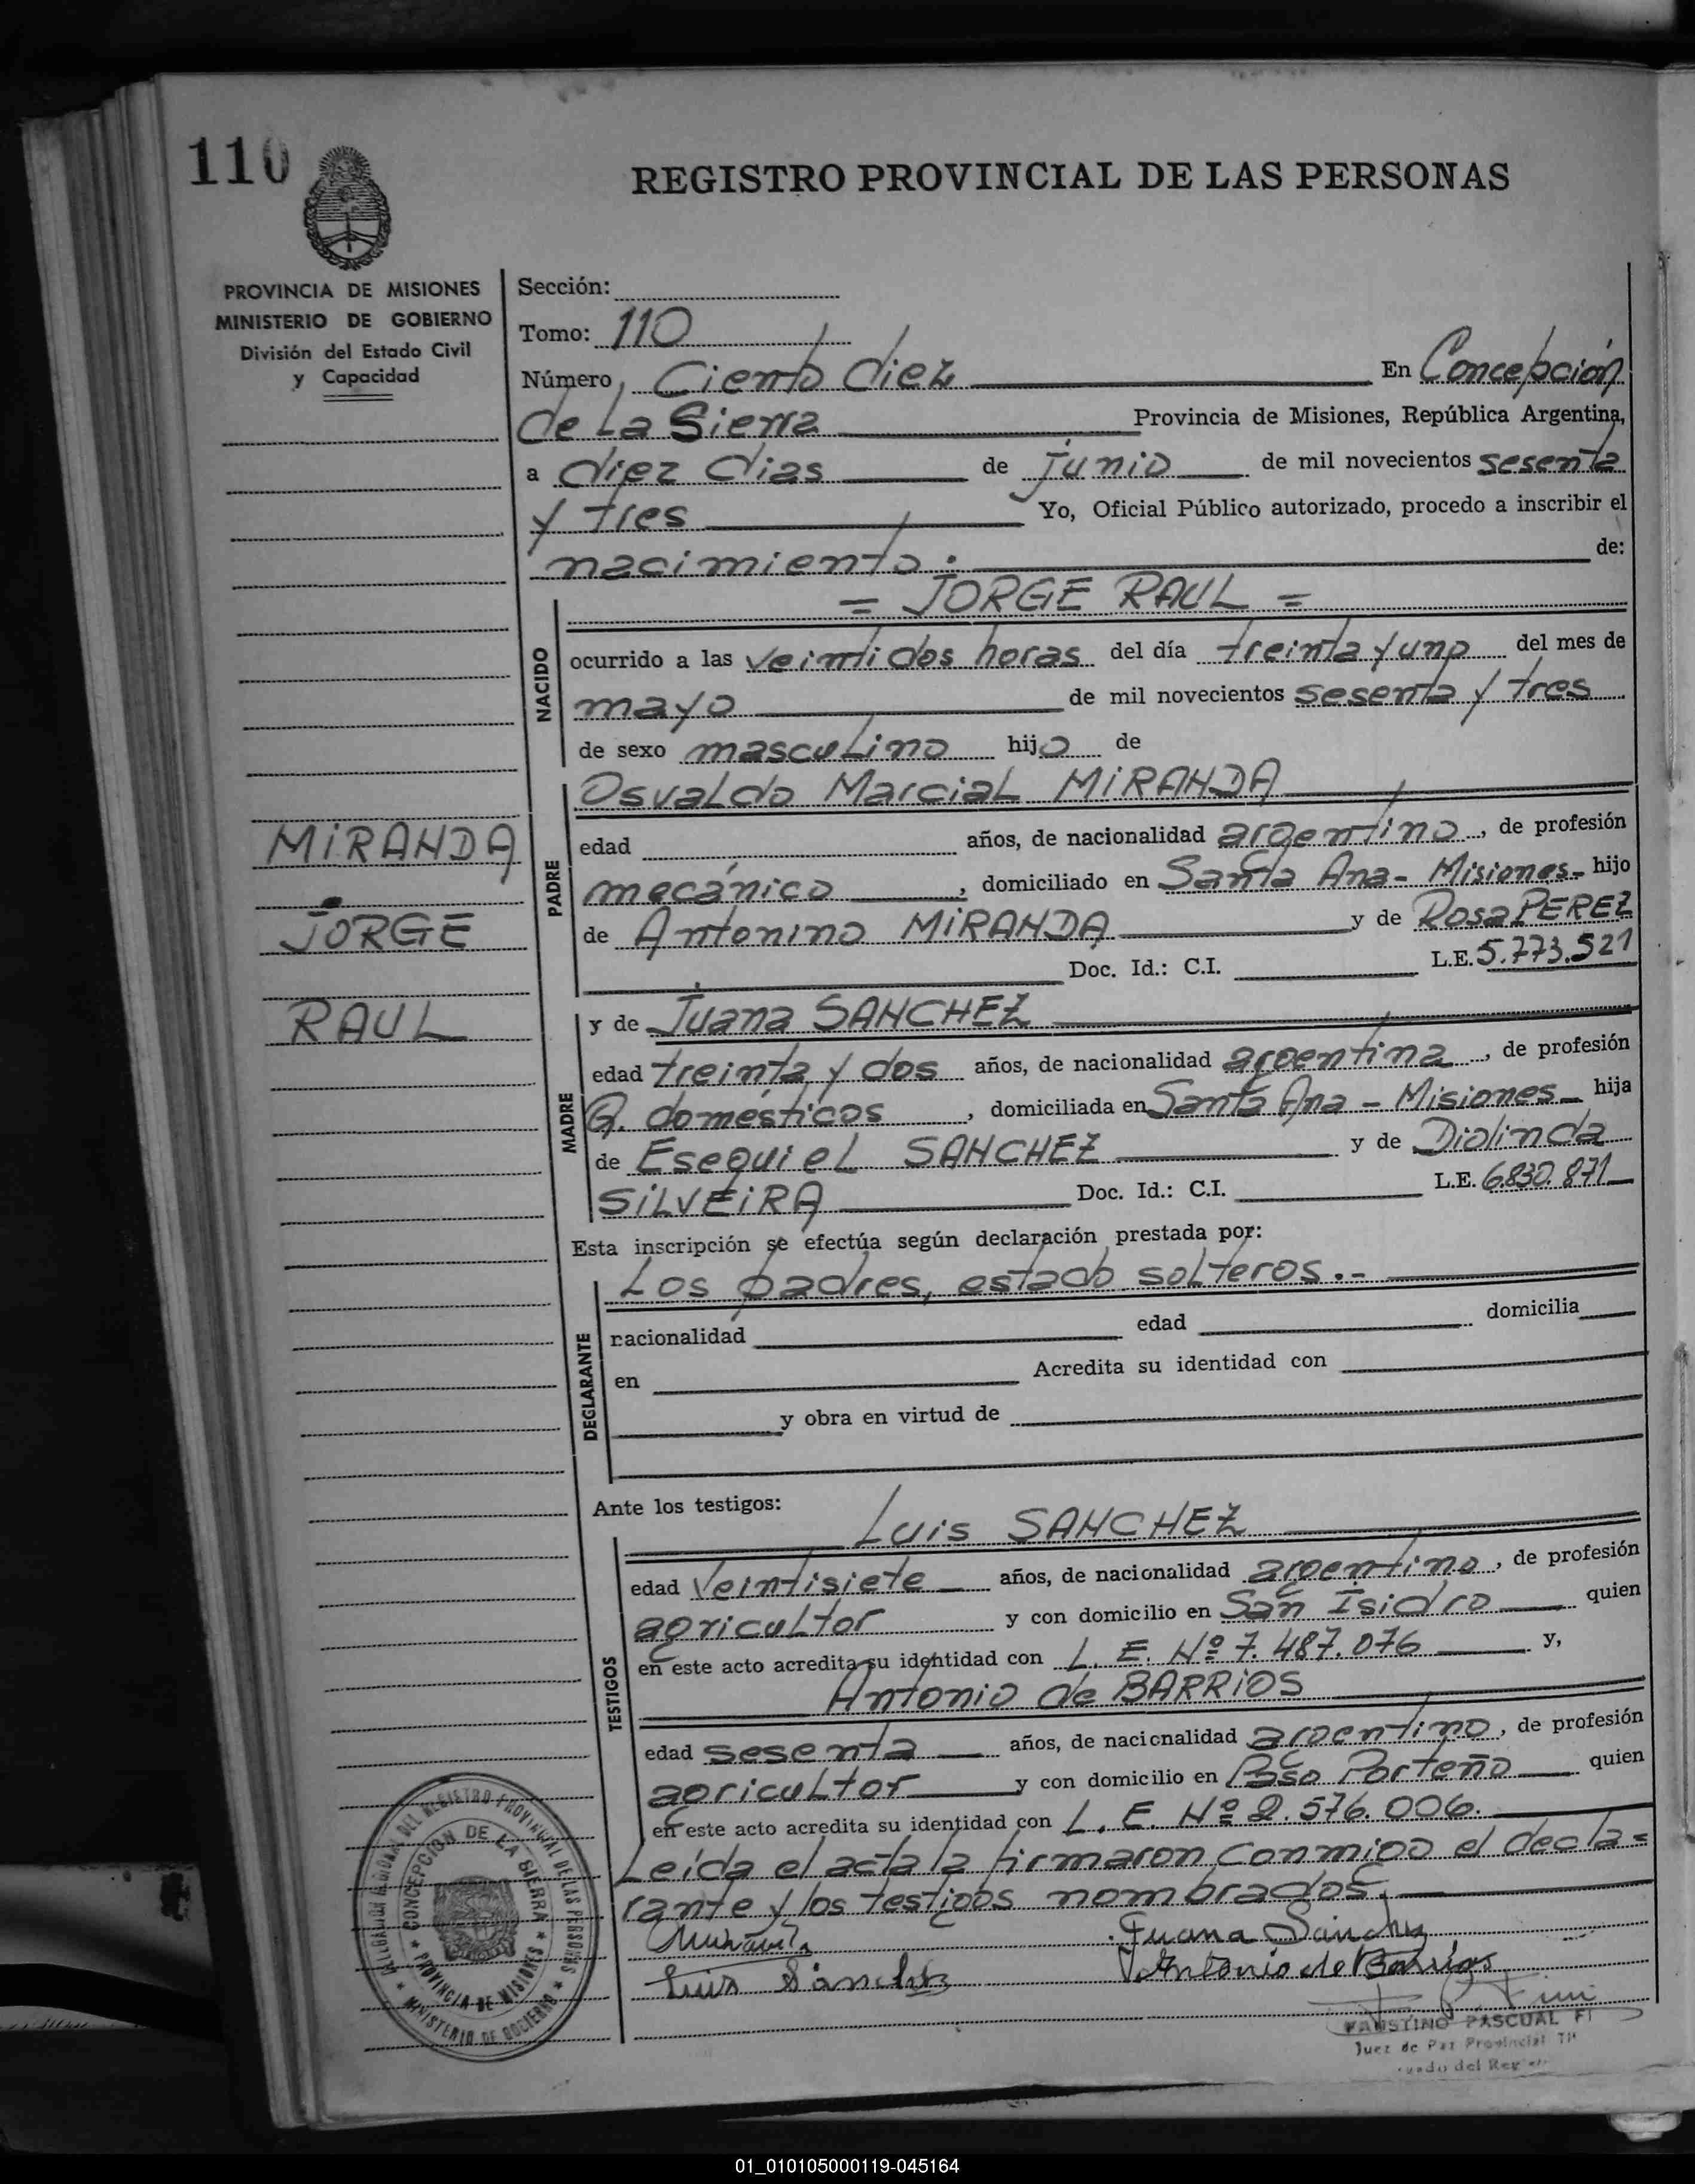 110
REGISTRO PROVINCIAL DE LAS PERSONAS
PROVINCIA DE MISIONES
MINISTERIO DE GOBIERNO
División del Estado Civil
y Capacidad
Sección:
Tomo: 110
Número, Ciento diez En Concepción
de La Sierra Provincia de Misiones, República Argentina,
a diez dias de junio de mil novecientos sesenta
y tres Yo, Oficial Público autorizado, procedo a inscribir el
nacimiento. de:
= JORGE RAUL =
NACIDO
ocurrido a las veintidos horas del día treinta y uno del mes de
mayo de mil novecientos sesenta y tres
de sexo masculino hijo de
Osvaldo Marcial MIRANDA
MIRANDA
JORGE
RAUL
PADRE
edad años, de nacionalidad argentino, de profesión
mecánico, domiciliado en Santa Ana- Misiones- hijo
de Antonino MIRANDA y de Rosa PEREZ
Doc. Id.: C.I. L.E. 5.773.521
MADRE
y de Juana SANCHEZ
edad treinta y dos años, de nacionalidad argentina, de profesión
Q. domésticos, domiciliada en Santa Ana - Misiones- hija
de Esequiel SANCHEZ y de Diolinda
SILVEIRA Doc. Id.: C.I. L.E. 6.830.871
Esta inscripción se efectúa según declaración prestada por:
Los padres, estado solteros.-
DECLARANTE
nacionalidad edad domicilia
en Acredita su identidad con
y obra en virtud de
Ante los testigos:
Luis SANCHEZ
TESTIGOS
edad Veintisiete años, de nacionalidad argentino, de profesión
agricultor y con domicilio en San Isidro quien
en este acto acredita su identidad con L. E. Nº 7.487.076 y,
Antonio de BARRIOS
edad sesenta años, de nacionalidad argentino, de profesión
agricultor y con domicilio en Paso Porteño quien
en este acto acredita su identidad con L. E. Nº 2.576.006.
Leída el acta la firmaron conmigo el decla=
rante y los testigos nombrados.
Juana Sánchez
Luis Sánchez Antonio de Barrios
FAUSTINO PASCUAL FI
Juez de Paz Provincial
del Reg
DEL REGISTRO PROVINCIAL DE LAS PERSONAS
CONCEPCION DE LA SIERRA
PROVINCIA DE MISIONES
MINISTERIO DE GOBIERNO
01_010105000119-045164